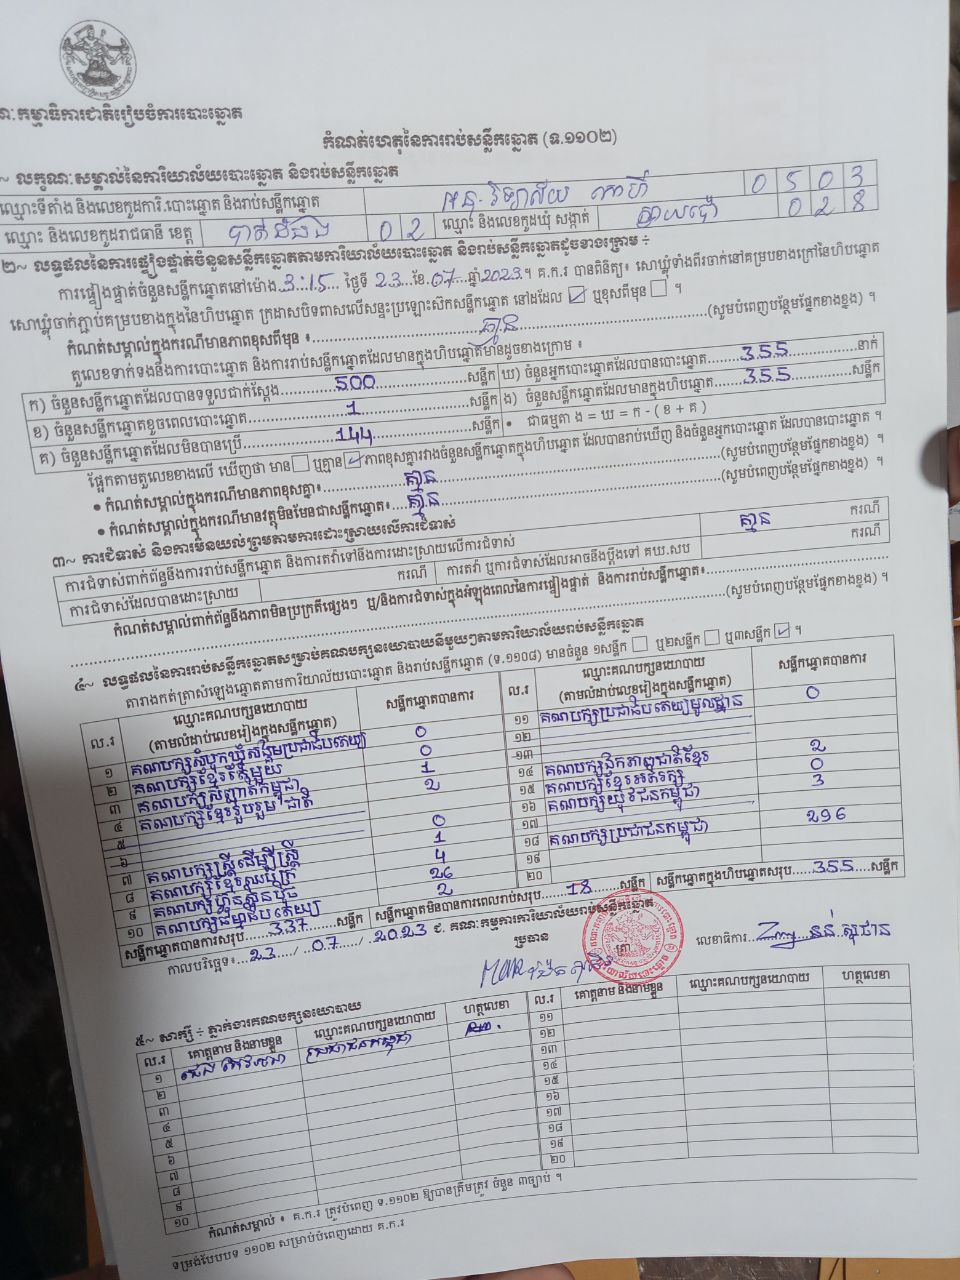 គណៈកម្មាធិការជាតិរៀបចំការបោះឆ្នោត
កំណត់ហេតុនៃការរាប់សន្លឹកឆ្នោត (ទ.១១០២)
១~ លក្ខណៈសម្គាល់នៃការិយាល័យបោះឆ្នោត និងរាប់សន្លឹកឆ្នោត
ឈ្មោះទីតាំង និងលេខកូដការិ.បោះឆ្នោត និងរាប់សន្លឹកឆ្នោត អនុ.វិទ្យាល័យ 0503
ឈ្មោះ និងលេខកូដរាជធានី ខេត្ត បាត់ដំបង 02 ឈ្មោះ និងលេខកូដឃុំ សង្កាត់ ស្វាយប៉ោ 028
២~ លទ្ធផលនៃការផ្ទៀងផ្ទាត់ចំនួនសន្លឹកឆ្នោតតាមការិយាល័យបោះឆ្នោត និងរាប់សន្លឹកឆ្នោតដូចខាងក្រោម ÷
ការផ្ទៀងផ្ទាត់ចំនួនសន្លឹកឆ្នោតនៅម៉ោង 3:15 ថ្ងៃទី 23 ខែ 07 ឆ្នាំ 2023 ។ គ.ក.រ បានពិនិត្យ៖ សោឃ្លុំទាំងពីរចាក់នៅគម្របខាងក្រៅនៃហិបឆ្នោត
សោឃ្លុំចាក់ភ្ជាប់គម្របខាងក្នុងនៃហិបឆ្នោត ក្រដាសបិទពាសលើសន្ទះប្រឡោះស៊កសន្លឹកឆ្នោត នៅដដែល ☑ ឬខុសពីមុន ☐ ។
កំណត់សម្គាល់ក្នុងករណីមានភាពខុសពីមុន ៖ គ្មាន (សូមបំពេញបន្ថែមផ្នែកខាងខ្នង) ។
តួលេខទាក់ទងនឹងការបោះឆ្នោត និងការរាប់សន្លឹកឆ្នោតដែលមានក្នុងហិបឆ្នោតមានដូចខាងក្រោម ៖
ក) ចំនួនសន្លឹកឆ្នោតដែលបានទទួលជាក់ស្តែង 500 សន្លឹក ឃ) ចំនួនអ្នកបោះឆ្នោតដែលបានបោះឆ្នោត 355 នាក់
ខ) ចំនួនសន្លឹកឆ្នោតខូចពេលបោះឆ្នោត 1 សន្លឹក ង) ចំនួនសន្លឹកឆ្នោតដែលមានក្នុងហិបឆ្នោត 355 សន្លឹក
គ) ចំនួនសន្លឹកឆ្នោតដែលមិនបានប្រើ 144 សន្លឹក • ជាធម្មតា ង = ឃ = ក - ( ខ + គ )
ផ្អែកតាមតួលេខខាងលើ ឃើញថា មាន ☐ ឬគ្មាន ☑ ភាពខុសគ្នារវាងចំនួនសន្លឹកឆ្នោតក្នុងហិបឆ្នោត ដែលបានរាប់ឃើញ និងចំនួនអ្នកបោះឆ្នោត ដែលបានបោះឆ្នោត ។
• កំណត់សម្គាល់ក្នុងករណីមានភាពខុសគ្នា៖ គ្មាន (សូមបំពេញបន្ថែមផ្នែកខាងខ្នង) ។
• កំណត់សម្គាល់ក្នុងករណីមានវត្ថុមិនមែនជាសន្លឹកឆ្នោត៖ គ្មាន (សូមបំពេញបន្ថែមផ្នែកខាងខ្នង) ។
៣~ ការជំទាស់ និងការមិនយល់ព្រមតាមការដោះស្រាយលើការជំទាស់
ការជំទាស់ពាក់ព័ន្ធនឹងការរាប់សន្លឹកឆ្នោត និងការតវ៉ាទៅនឹងការដោះស្រាយលើការជំទាស់ គ្មាន ករណី
ការជំទាស់ដែលបានដោះស្រាយ ករណី ការតវ៉ា ឬការជំទាស់ដែលអាចនឹងប្តឹងទៅ គឃ.សប ករណី
កំណត់សម្គាល់ពាក់ព័ន្ធនឹងភាពមិនប្រក្រតីផ្សេងៗ ឬ/និងការជំទាស់ក្នុងអំឡុងពេលនៃការផ្ទៀងផ្ទាត់ និងការរាប់សន្លឹកឆ្នោត៖
(សូមបំពេញបន្ថែមផ្នែកខាងខ្នង) ។
៤~ លទ្ធផលនៃការរាប់សន្លឹកឆ្នោតសម្រាប់គណបក្សនយោបាយនីមួយៗតាមការិយាល័យរាប់សន្លឹកឆ្នោត
តារាងកត់ត្រាសំឡេងឆ្នោតតាមការិយាល័យបោះឆ្នោត និងរាប់សន្លឹកឆ្នោត (ទ.១១០៨) មានចំនួន ១សន្លឹក ☐ ឬ២សន្លឹក ☐ ឬ៣សន្លឹក ☑ ។
ល.រ ឈ្មោះគណបក្សនយោបាយ (តាមលំដាប់លេខរៀងក្នុងសន្លឹកឆ្នោត) សន្លឹកឆ្នោតបានការ ល.រ ឈ្មោះគណបក្សនយោបាយ (តាមលំដាប់លេខរៀងក្នុងសន្លឹកឆ្នោត) សន្លឹកឆ្នោតបានការ
១ គណបក្សសំបុកឃ្មុំសង្គមប្រជាធិបតេយ្យ 0
២ គណបក្សខ្មែរតែមួយ 0
៣ គណបក្សសញ្ជាតិកម្ពុជា 1
៤ គណបក្សខ្មែររួបរួមជាតិ 2
៥
៦ 0
៧ គណបក្សស្ត្រីដើម្បីស្ត្រី 1
៨ គណបក្ស 4
៩ គណបក្សហ៊្វុនស៊ិនប៉ិច 26
១០ គណបក្ស 2
១១ គណបក្សប្រជាធិបតេយ្យមូលដ្ឋាន 0
១២
១៣
១៤ គណបក្សឯកភាពជាតិខ្មែរ 2
១៥ គណបក្សខ្មែរអភិរក្ស 0
១៦ គណបក្សយុវជនកម្ពុជា 3
១៧
១៨ គណបក្សប្រជាជនកម្ពុជា 296
១៩
២០
សន្លឹកឆ្នោតបានការសរុប 337 សន្លឹក សន្លឹកឆ្នោតមិនបានការពេលរាប់សរុប 18 សន្លឹក សន្លឹកឆ្នោតក្នុងហិបឆ្នោតសរុប 355 សន្លឹក
កាលបរិច្ឆេទ៖ 23 / 07 / 2023 ជ. គណៈកម្មការការិយាល័យរាប់សន្លឹកឆ្នោត
ប្រធាន ត្រា លេខាធិការ
៥~ សាក្សី ÷ ភ្នាក់ងារគណបក្សនយោបាយ
ល.រ គោត្តនាម និងនាមខ្លួន ឈ្មោះគណបក្សនយោបាយ ហត្ថលេខា ល.រ គោត្តនាម និងនាមខ្លួន ឈ្មោះគណបក្សនយោបាយ ហត្ថលេខា
១ ប្រជាជនកម្ពុជា ១១
២ ១២
៣ ១៣
៤ ១៤
៥ ១៥
៦ ១៦
៧ ១៧
៨ ១៨
៩ ១៩
១០ ២០
កំណត់សម្គាល់ ៖ គ.ក.រ ត្រូវបំពេញ ទ.១១០២ ឱ្យបានត្រឹមត្រូវ ចំនួន ៣ច្បាប់ ។
ទម្រង់បែបបទ ១១០២ សម្រាប់បំពេញដោយ គ.ក.រ